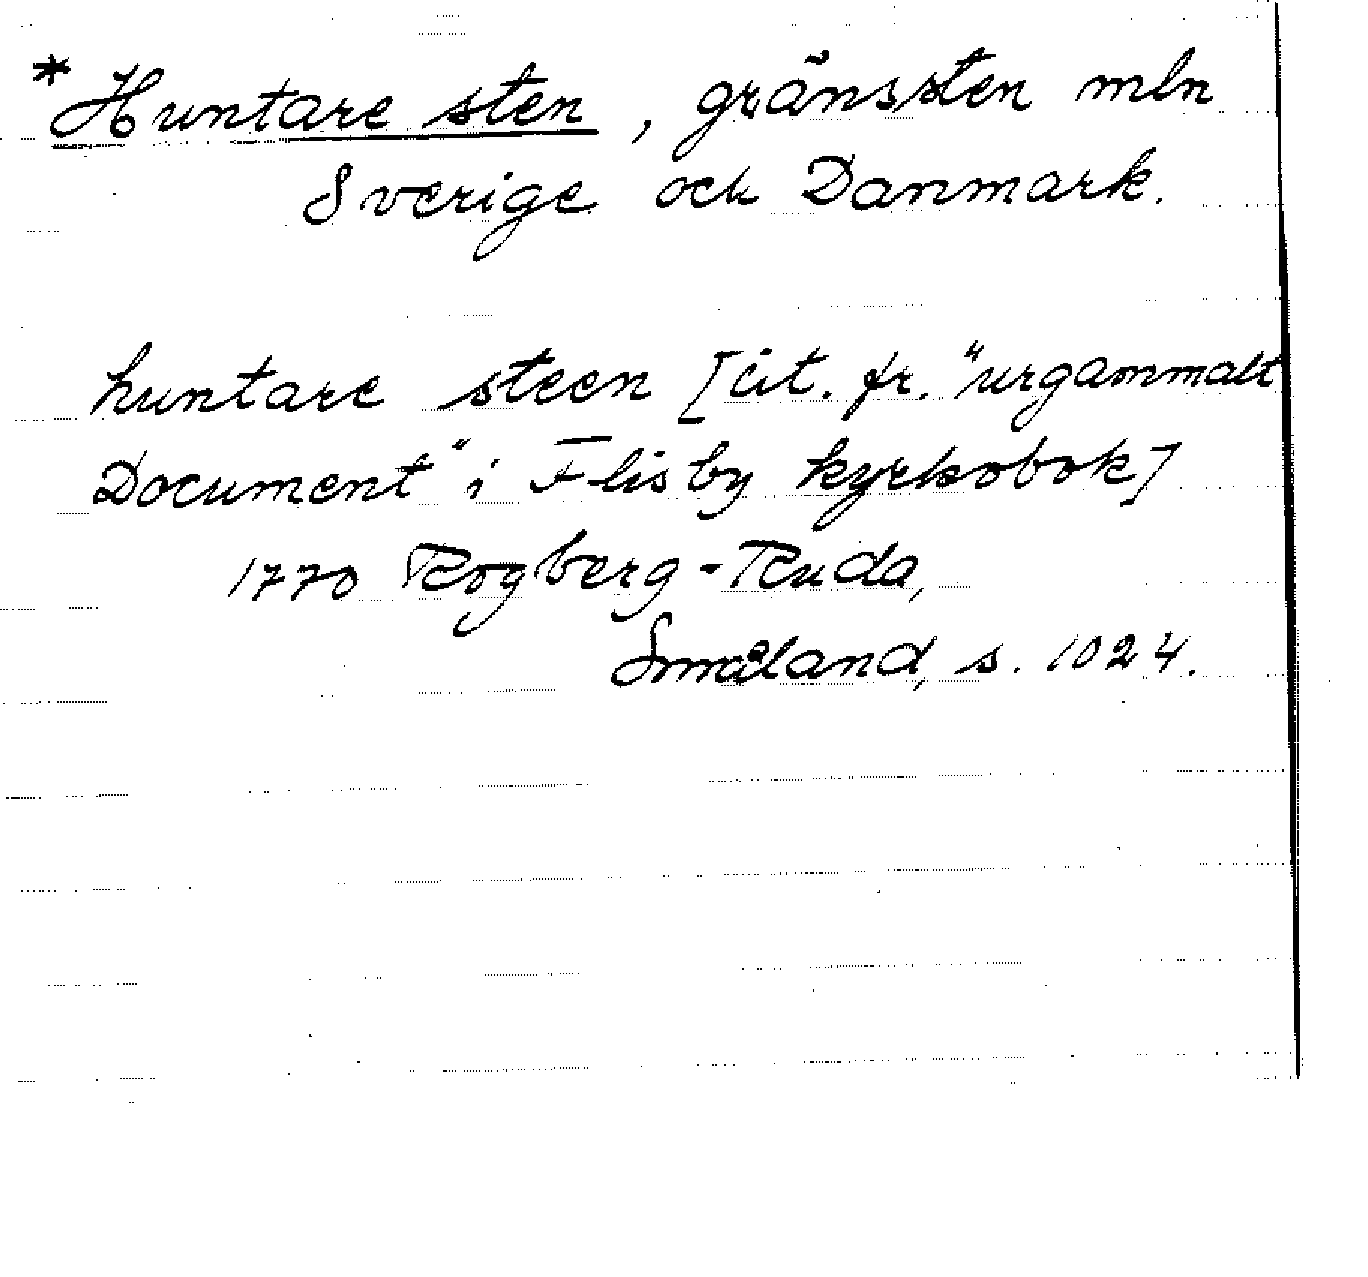 *Huntare sten, gränssten mln
Sverige och Danmark.
huntare steen [cit. fr. "urgammalt
Document" i Flisby kyrkobok]
1770 Rogberg-Ruda,
Småland, s. 1024.